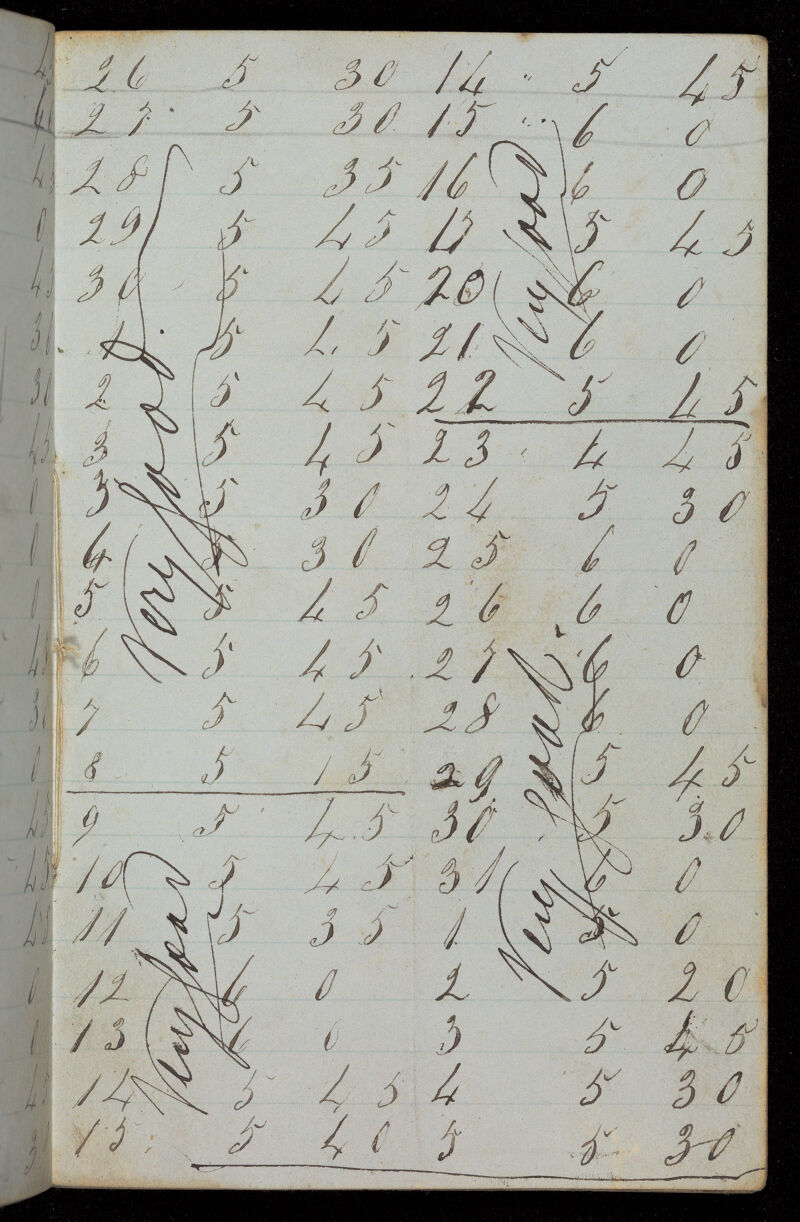 26 5 30
27 5 30
28 5 35
29 5 45
30 5 45
1 5 45
2 5 45
3 5 45
3 5 30
4 5 30
5 5 45
6 5 45
7 5 45
8 5 15
Very Good
9 5 45
10 5 45
11 5 35
12 6 0
13 6 0
14 5 45
15 5 40
Very Good
14 " 5 45
15 " 6 0
16 6 0
5 45
20 6 0
21 6 0
22 5 45
Very Good
23 4 45
24 5 30
25 6 0
26 6 0
27 6 0
28 6 0
29 5 45
30 5 30
31 6 0
1 5 0
2 5 20
3 5 45
4 5 30
5 5 30
Very Good